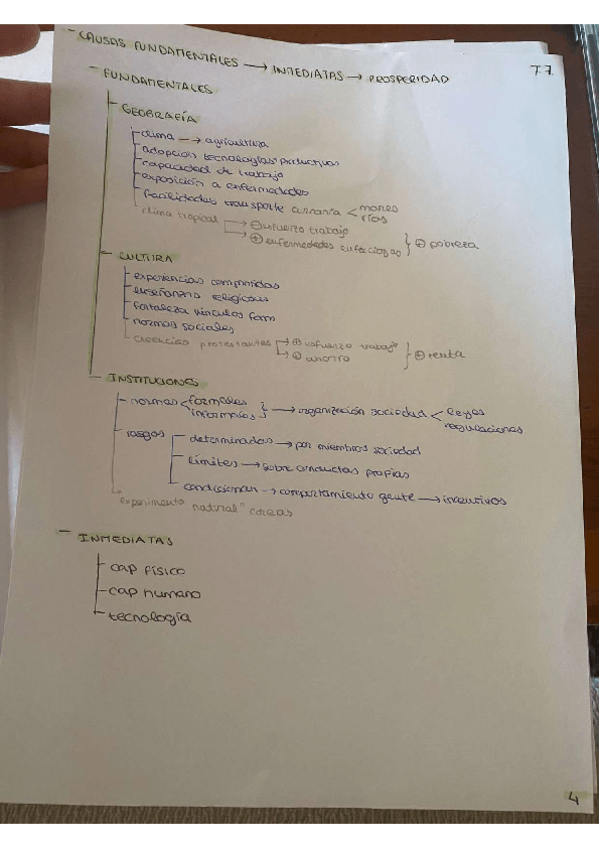 - CAUSAS FUNDAMENTALES → INMEDIATAS → PROSPERIDAD
T.7
- FUNDAMENTALES
- GEOGRAFÍA
clima → agricultura
adopción tecnologías productivas
capacidad de trabajo
exposición a enfermedades
facilidades transporte < mares
ríos
clima tropical → ⊖ esfuerzo trabajo
→ ⊕ enfermedades } ⊕ pobreza
- CULTURA
experiencias compartidas
enseñanzas religiosas
fortaleza vínculos fam
normas sociales
creencias protestantes → ⊕ esfuerzo trabajo
→ ahorro } ⊕ renta
- INSTITUCIONES
- normas < formales
informales } → organización sociedad < leyes
regulaciones
rasgos
determinadas → por miembros sociedad
límites → sobre conductas propias
condicionan → comportamiento gente → incentivos
"experimento natural" coreas
- INMEDIATAS
- cap físico
- cap humano
- tecnología
4